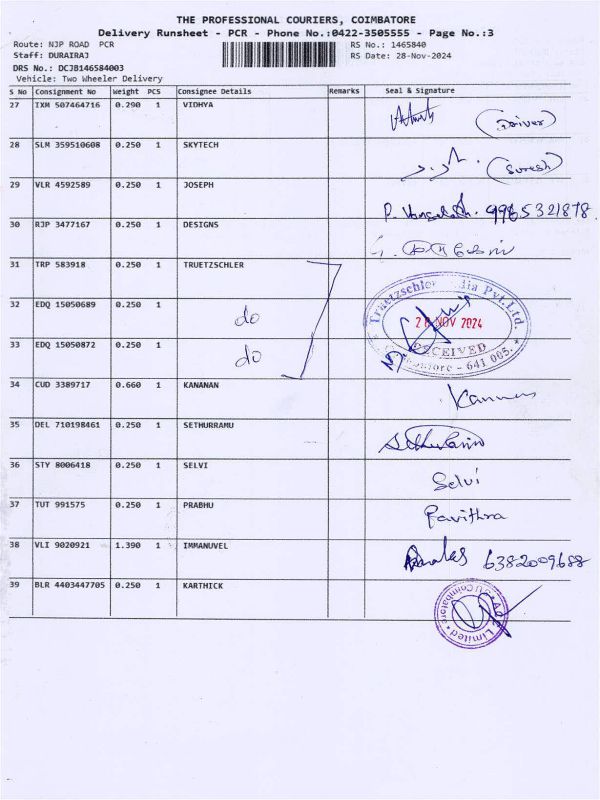 THE PROFESSIONAL COURIERS, COIMBATORE
Delivery Runsheet - PCR - Phone No.:0422-3505555 - Page No.:3
Route: NJP ROAD PCR
RS No.: 1465840
Staff: DURAIRAJ
RS Date: 28-Nov-2024
DRS No.: DCJB146584003
Vehicle: Two Wheeler Delivery
S No Consignment No Weight PCS Consignee Details Remarks Seal & Signature
27 IXM 507464716 0.290 1 VIDHYA (Driver)
28 SLM 359510608 0.250 1 SKYTECH (Suresh)
29 VLR 4592589 0.250 1 JOSEPH 9965321878
30 RJP 3477167 0.250 1 DESIGNS
31 TRP 583918 0.250 1 TRUETZSCHLER
32 EDQ 15050689 0.250 1 do
33 EDQ 15050872 0.250 1 do
Truetzschler India Pvt.Ltd.
28 NOV 2024
RECEIVED
Coimbatore - 641 005.
34 CUD 3389717 0.660 1 KANANAN Kannan
35 DEL 710198461 0.250 1 SETHURRAMU
36 STY 8006418 0.250 1 SELVI Selvi
37 TUT 991575 0.250 1 PRABHU Pavithra
38 VLI 9020921 1.390 1 IMMANUVEL 6382009688
39 BLR 4403447705 0.250 1 KARTHICK
Limited
Coimbatore